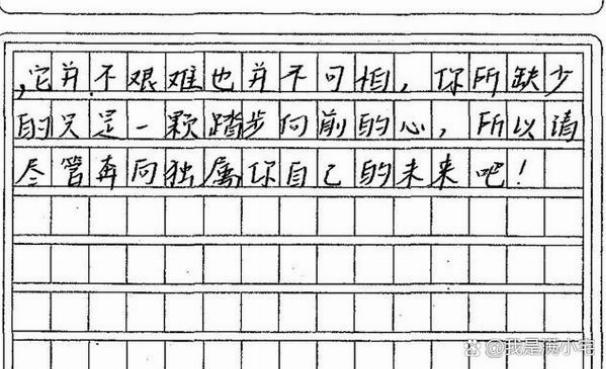 ,它并不艰难也并不可怕,你所缺少
的只是一颗踏步向前的心,所以请
尽管奔向独属你自己的未来吧!
@我是满小宅